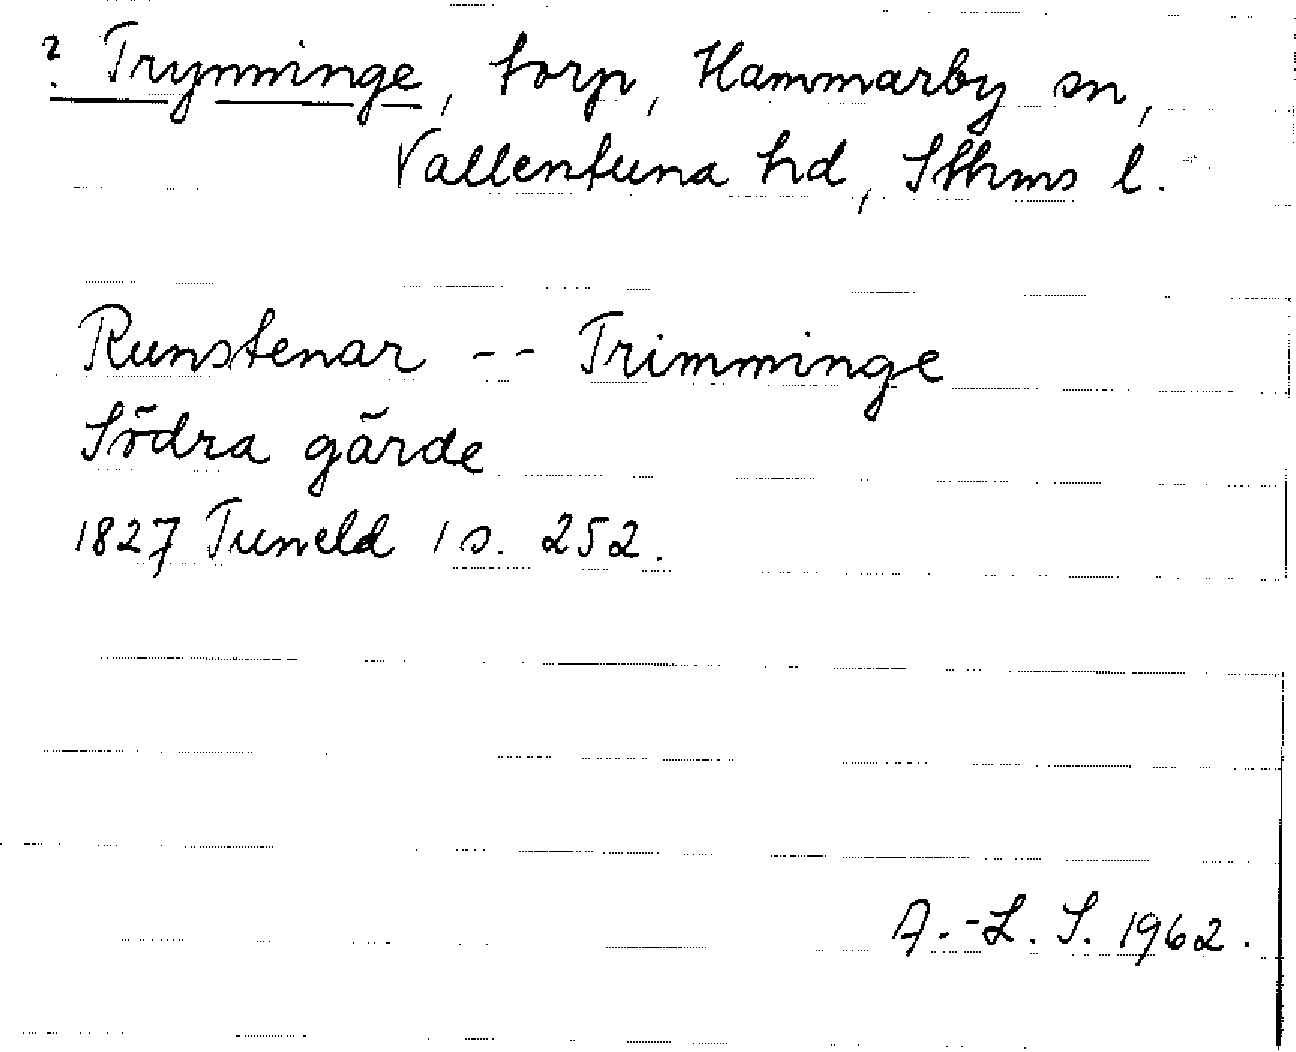 ? Trynninge, torp, Hammarby sn,
Vallentuna hd, Sthms l.
Runstenar -- Trimminge
Södra gärde
1827 Tuneld 1 s. 252.
A.-L. S. 1962.